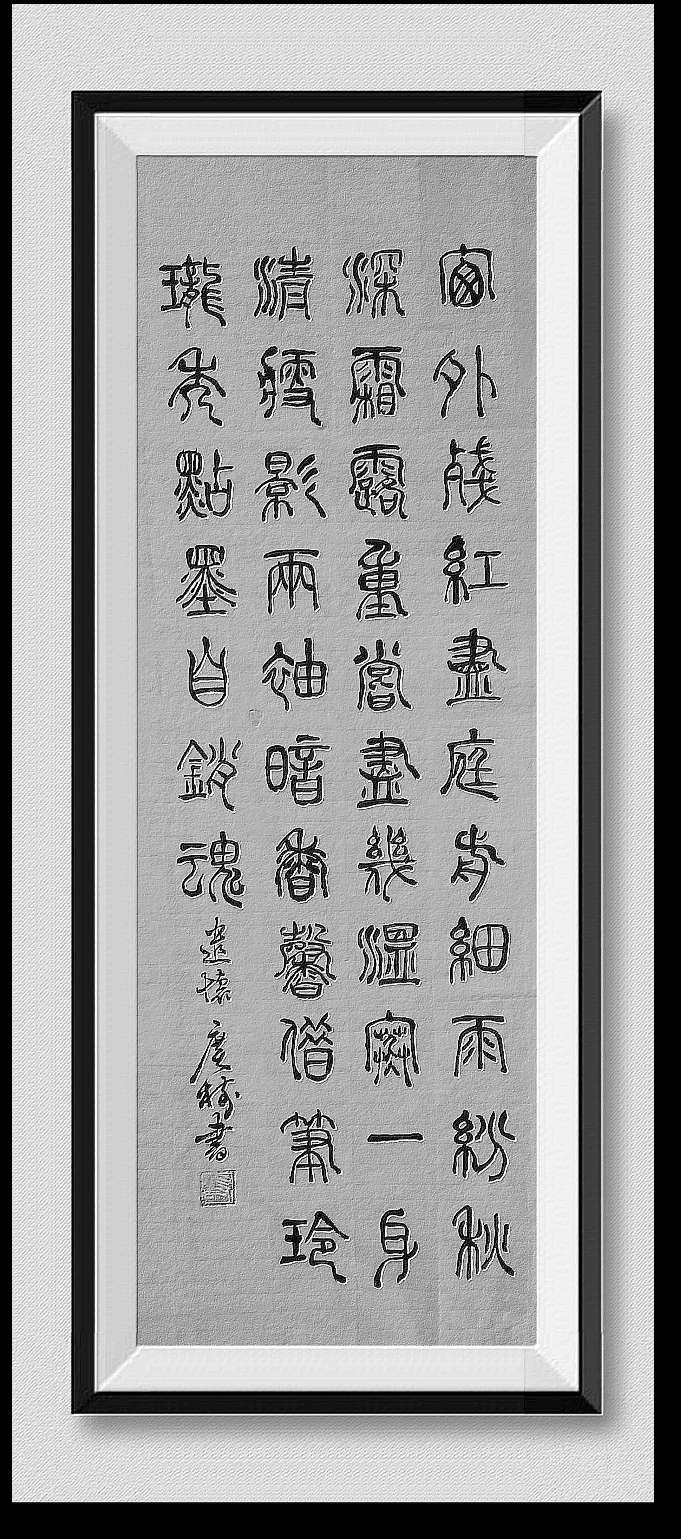 窗外殘紅盡庭前細雨紛秋
深霜露重嘗盡幾溫寒一身
清瘦影兩袖暗香馨借筆玲
瓏秀點墨自銷魂
遣懷
書